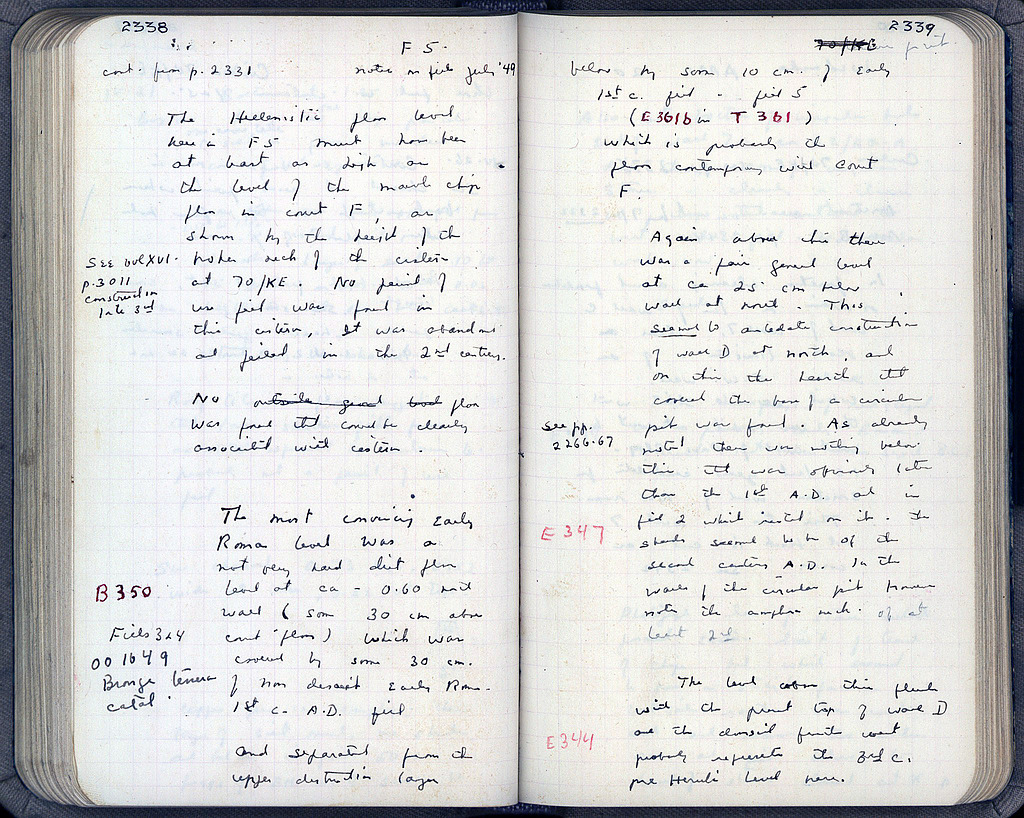 2338
F 5.
cont. from p. 2331 notes on fills July '49
The Hellenistic floor level
here in F5 must have been
at least as high as
the level of the marble chip
floor in court F, as
shown by the height of the
neck of the cistern
See vol XVI.
p. 3011
construction
late 3rd
at 70/KE. No period of
use fill was found in
this cistern, it was abandoned
and filled in the 2nd century.
No outside good level floor
was found that could be clearly
associated with cistern.
The most convincing Early
Roman level was a
not very hard dirt floor
B 350
level at ca - 0.60 north
wall (some 30 cm above
Fills 3 & 4
court floor) which was
001649
covered by some 30 cm.
Bronze tessera
catal.
of non descript Early Rom.
1st c. A.D. fill
and separated from the
upper destruction layer
2339
70/KE
below by some 10 cm. of Early
1st c. fill - fill 5
(E 361b in T 361)
which is probably the
floor contemporary with Court
F.
Again above this there
was a fair general level
at ca 25 cm below
wall at north. This
seemed to antedate construction
of wall D at north, and
on this the hearth that
covered the base of a circular
see pp.
2266-67
pit was found. As already
noted there was nothing below
this that was obviously later
than the 1st A.D. and in
fill 2 which rested on it. the
E 347
sherds seemed to be of the
second century A.D. In the
walls of the circular pit however
note the amphora neck of at
least 2nd
The level above this flush
with the present top of wall D
and the
E 344
probably represents the 3rd c.
pre Heruli level here.